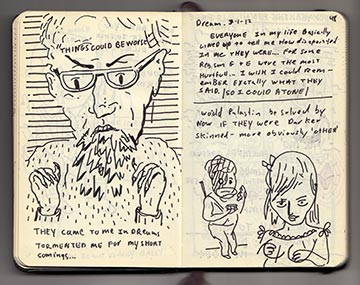 "THINGS COULD BE WORSE"
THEY CAME TO ME IN DREAMS
TORMENTED ME FOR MY SHORT
COMINGS...
48
Dream. 3-4-12
EVERYONE IN MY LIFE BASICALLY
LINED UP to tell me How disappointed
IN ME THEY WERE... FOR SOME
REASON E + E WERE THE MOST
HURTFUL... I WISH I COULD REM-
EMBER EXACTLY WHAT THEY
SAID. (SO I COULD ATONE)
WOULD Palastin be solved by
NOW IF THEY WERE DARKER
SKINNED - more obviously 'OTHER'